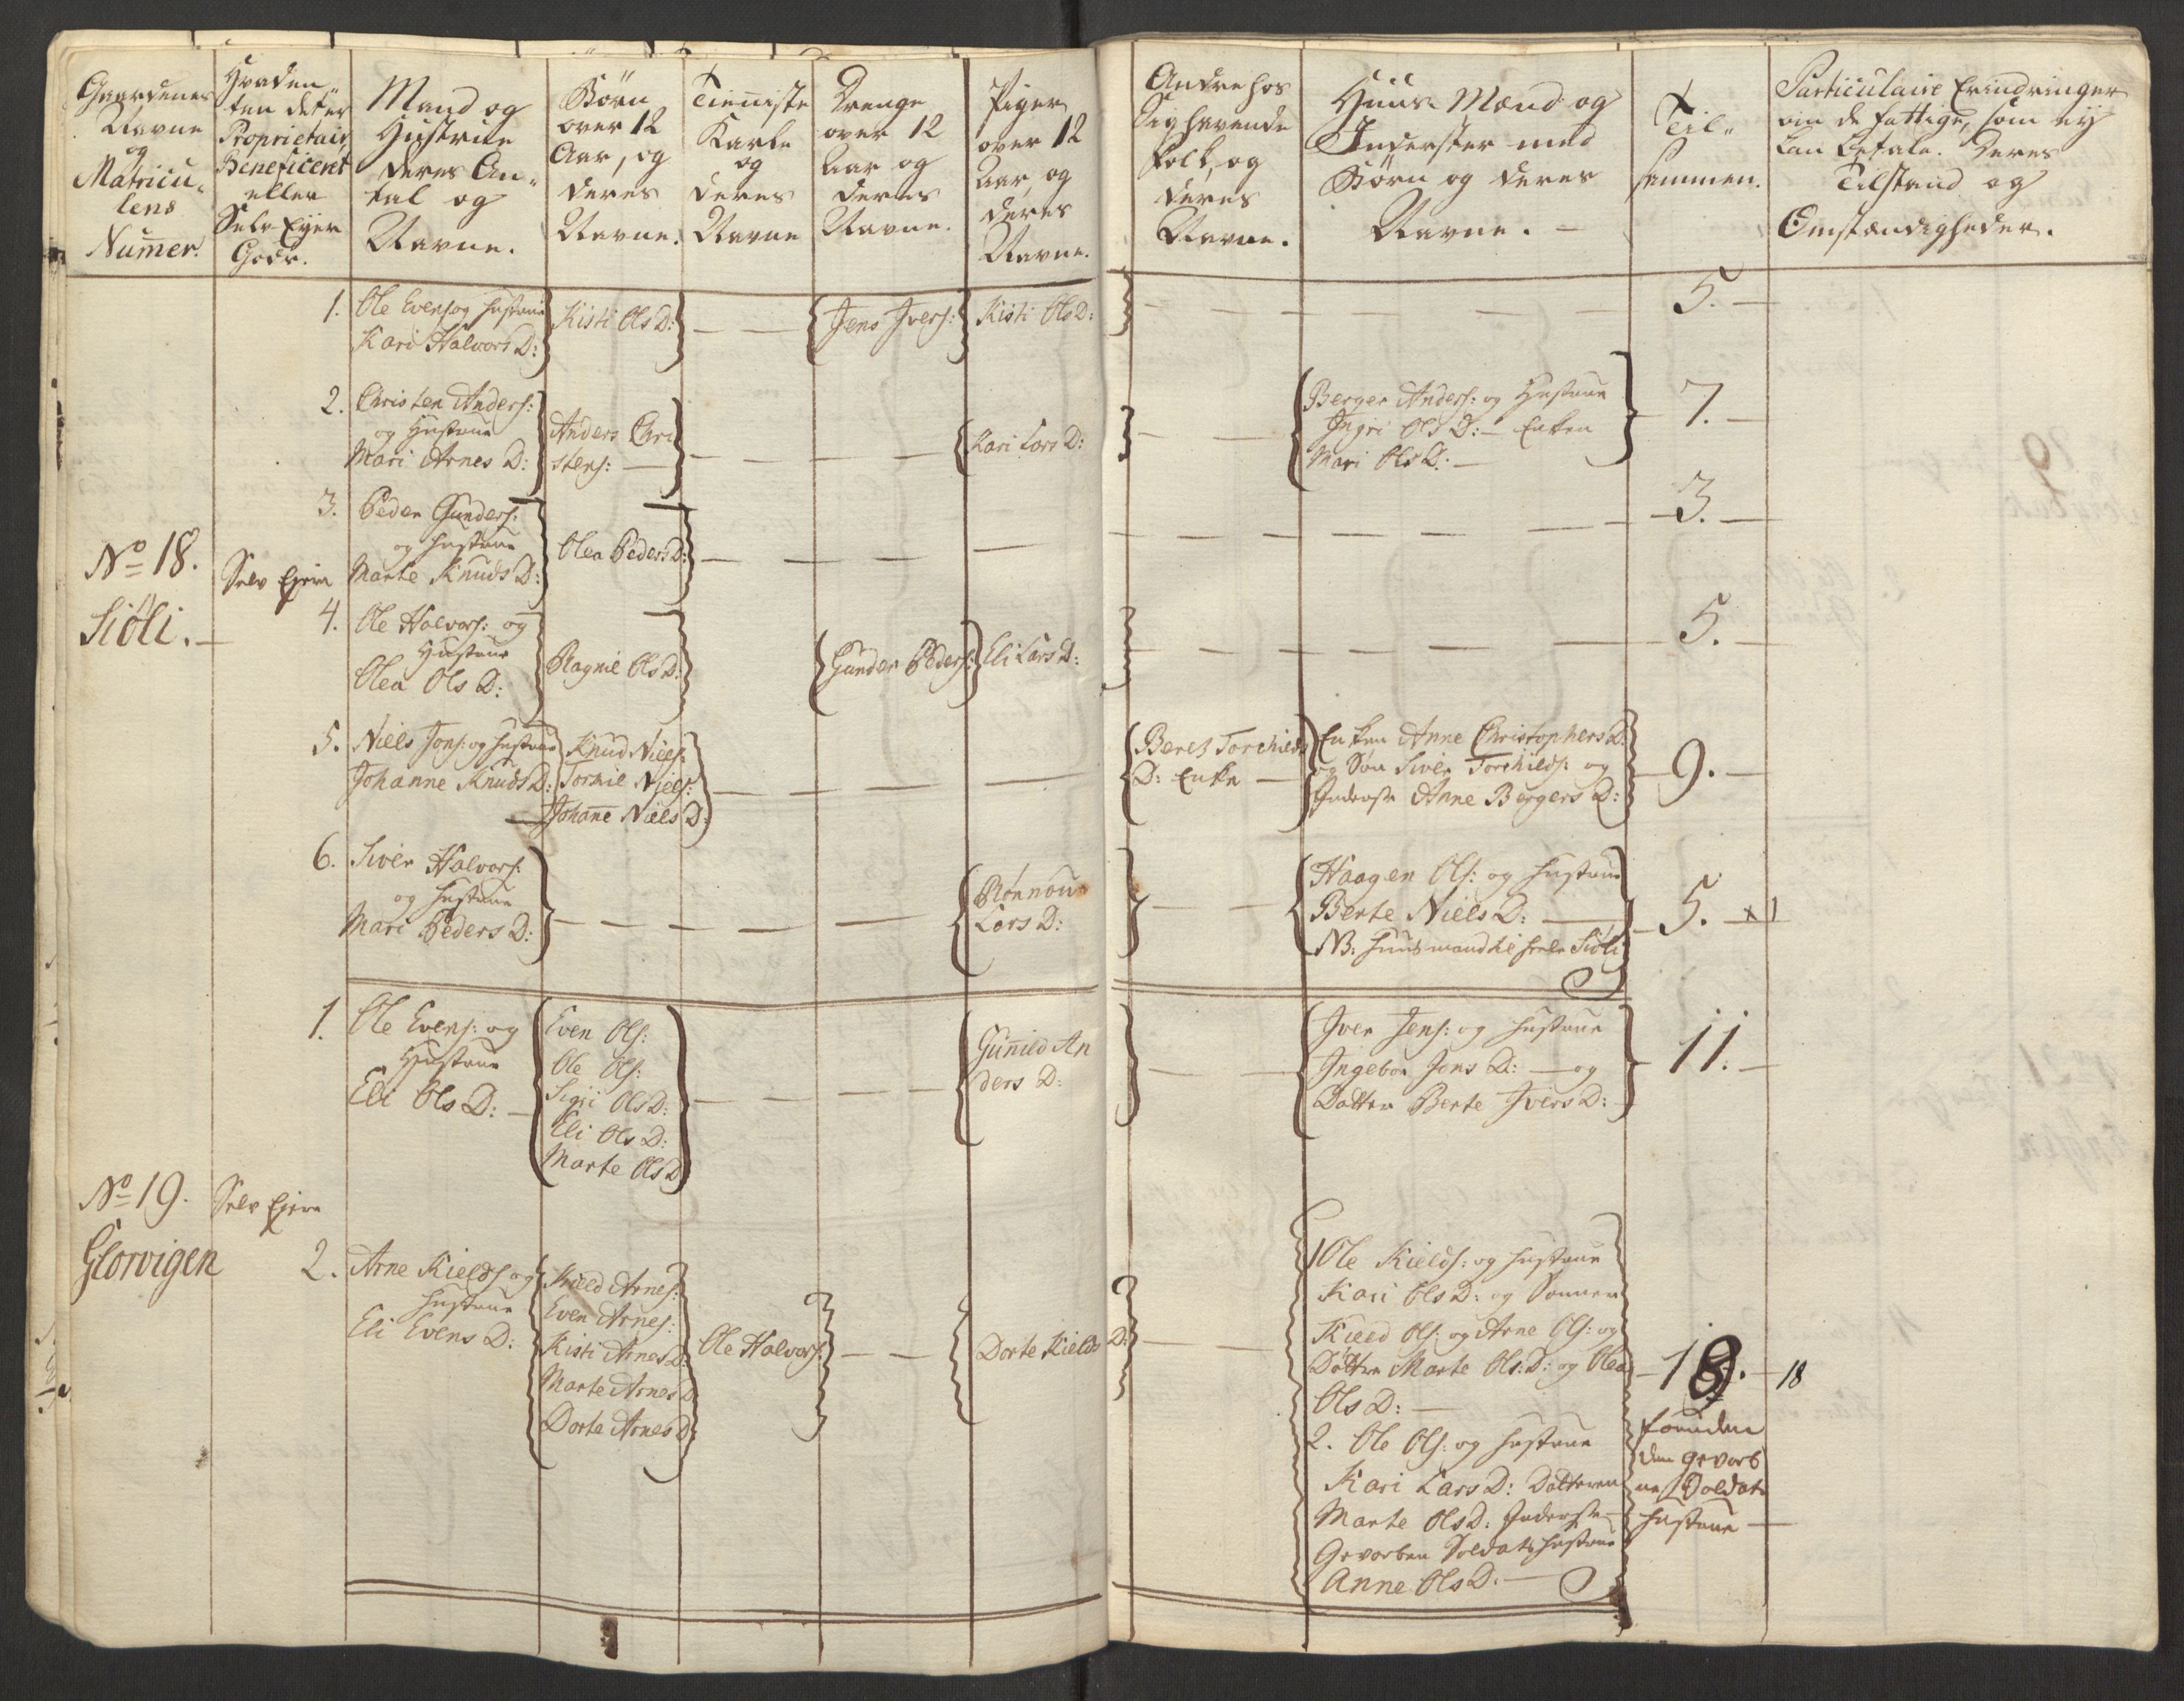 Gaardenes
Navne
og
Matricu-
lens
Numer.
Hvaden-
ten det er
Proprietair
Beneficeret
eller
Selv Eyer
Gods.
Mand og
Hustrue
deres An-
tal og
Navne.
Børn
over 12
Aar, og
deres
Navne.
Tienniste
Karle
og
deres
Navne
Drenge
over 12
Aar og
deres
Navne.
Piger
over 12
Aar, og
deres
Navne.
Andre hos
Sig havende
folk, og
deres
Navne.
Huus-Mænd og
Inderster med
Børn og deres
Navne.
Til-
sammen.
Particulaire Erindringer
om de fattige, som ey
kan betale. Deres
Tilstand og
Omstændigheder.
No 18.
Siöli.
Selv Ejere
1. Ole Evens: og Hustrue
Kari Halvors D:
Kisti Ols D:
Jens Ivers:
Kisti Ols D:
5.
2. Christen Anders:
og Hustrue
Mari Arnes D:
Anders Chri
stens:
Kari Lars D:
Berger Anders: og Hustrue
Ingri Ols D: Enken
Mari Ols D:
7.
3. Peder Gunders:
og Hustrue
Marte Knuds D:
Olea Peders D:
3.
4. Ole Halvors: og
Hustrue
Olea Ols D:
Ragnil Ols D:
Gunder Peders:
Eli Lars D:
5.
5. Niels Jons: og Hustrue
Johanne Knuds D:
Knud Niels:
Tormil Niels:
Johanne Niels D:
Beret Torchilds
D: Enke
Enken Anne Christophers D:
og Søn Siver Torchilds: og
Inderste Anne Bergers D:
9.
6. Siver Halvors:
og Hustrue
Mari Peders D:
Rönnou
Lars D:
Haagen Ols: og Hustrue
Berte Niels D:
NB. Huusmand til heele Siöli
5. x 1
No 19.
Glorvigen
Selv Ejere
1. Ole Evens: og
Hustrue
Eli Ols D:
Even Ols:
Ole Ols:
Sigri Ols D:
Eli Ols D:
Marte Ols D
Gunnild An
ders D:
Iver Jens: og Hustrue
Ingebor Jons D: og
Datter Berte Ivers D:
11.
2. Arne Kields: og
Hustrue
Eli Evens D:
Kield Arnes:
Even Arnes:
Kisti Arnes D:
Marte Arnes D
Dorte Arnes D
Ole Halvors:
Dorte Kields D:
1 Ole Kields: og Hustrue
Kari Ols D: og Sønner
Kield Ols: og Arne Ols: og
Døttre Marte Ols D: og Olea
Ols D:
2. Ole Ols: og Hustrue
Kari Lars D: Datteren
Marte Ols D: Inderste
Gevorben Soldats Hustrue
Anne Ols D.
18. 18
foruden
den gevorb
ne Soldats
Hustrue